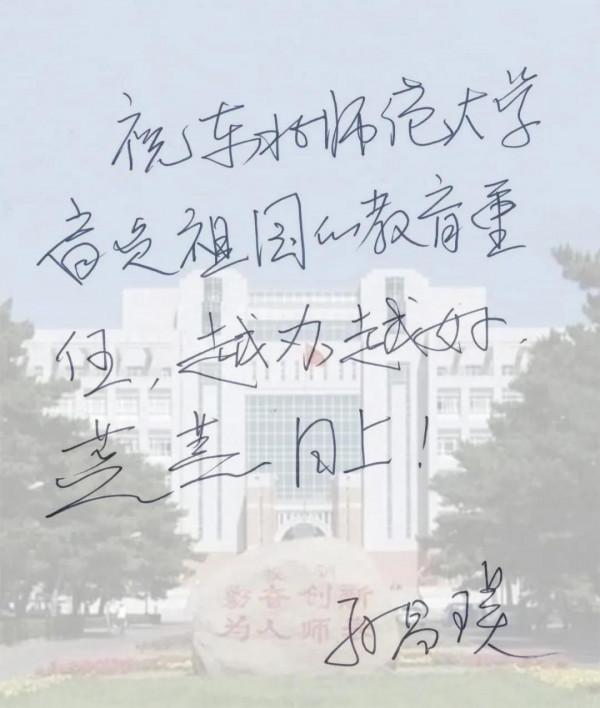 祝东北师范大学
肩负祖国的教育重
任，越办越好．
蒸蒸日上！
校训
勤奋创新
为人师表
孙昌璞